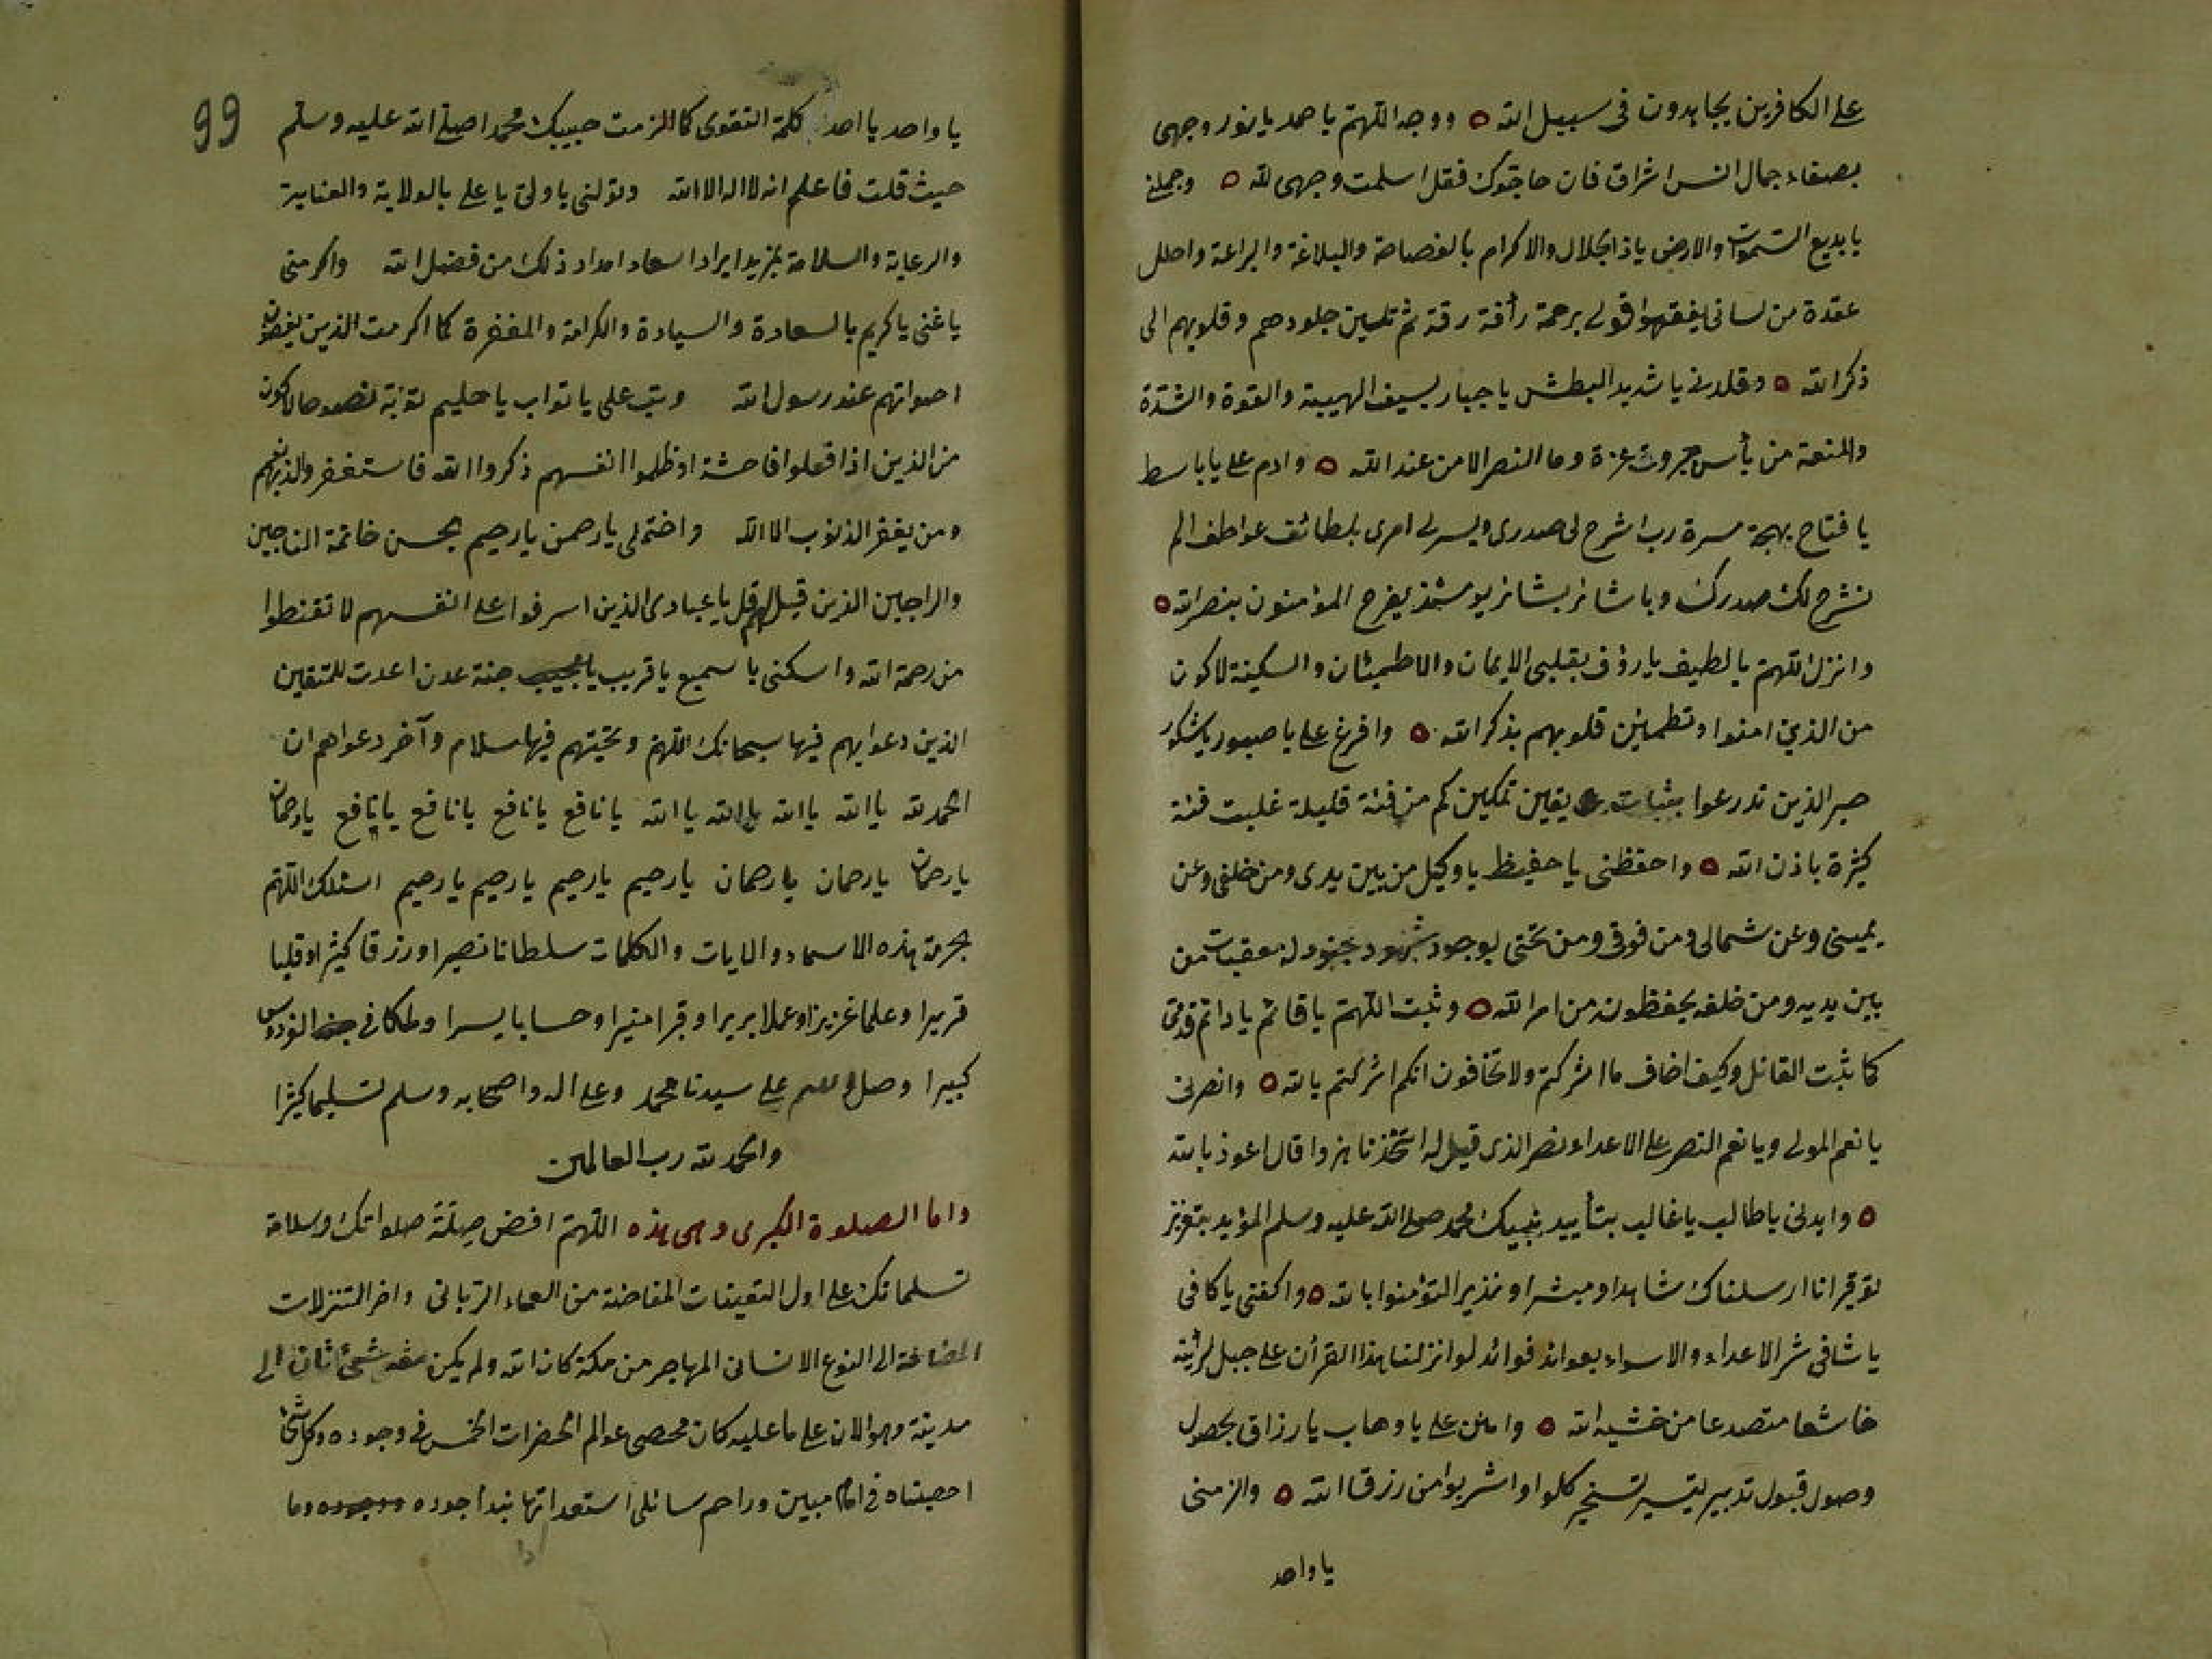 على الكافرين يجاهدون فى سبيل الله ووجه اللهم يا صمد يا نور وجهى
بصفاء جمال انس اشراق فان حاجوك فقل اسلمت وجهى لله وجملنى
يا بديع السموات والارض ياذا الجلال والاكرام بالفصاحة والبلاغة والبراعة واحلل
عقدة من لسانى يفقهوا قولى برحمة رأفة رقة ثم تلين جلودهم وقلوبهم الى
ذكر الله وقلدنى يا شديد البطش يا جبار بسيف الهيبة والقوة والشدة
والمنعة من بأس جبروت عزة وما النصر الا من عند الله وادم على يا باسط
يا فتاح بهجة مسرة رب اشرح لى صدرى ويسر لى امرى بلطائف عواطف الم
نشرح لك صدرك وباشائر بشائر يومئذ يفرح المؤمنون بنصر الله
وانزل اللهم يا لطيف يا رؤف بقلبى الايمان والاطمينان والسكينة لاكون
من الذين امنوا وتطمئن قلوبهم بذكر الله وافرغ على يا صبور يا شكور
صبر الذين تدرعوا بثبات يقين تمكين كم من فئة قليلة غلبت فئة
كثيرة باذن الله واحفظنى يا حفيظ يا وكيل من بين يدى ومن خلفى وعن
يمينى وعن شمالى ومن فوقى ومن تحتى بوجود شهود جنود له معقبات من
بين يديه ومن خلفه يحفظونه من امر الله وثبت اللهم يا قائم يا دائم قدمى
كما ثبت القائل وكيف اخاف ما اشركتم ولا تخافون انكم اشركتم بالله وانصرنى
يا نعم المولى ويا نعم النصر على الاعداء نصر الذى قيل له اتتخذنا هزوا قال اعوذ بالله
وايدنى يا طالب يا غالب بتأييد نبيك محمد صلى الله عليه وسلم المؤيد بتعزيز
توقير انا ارسلناك شاهدا ومبشرا ونذيرا لتؤمنوا بالله واكفنى يا كافى
يا شافى شر الاعداء والاسواء بعوائد فوائد لو انزلنا هذا القرأن على جبل لرأيته
خاشعا متصدعا من خشية الله وامنن على يا وهاب يا رزاق بحصول
وصول قبول تدبير تيسير تسخير كلوا واشربوا من رزق الله والزمنى
يا واحد
99
يا واحد يا احد كلمة التقوى كما الزمت حبيبك محمدا صلى الله عليه وسلم
حيث قلت فاعلم انه لا اله الا الله وتولنى يا ولى يا على بالولاية والعناية
والرعاية والسلامة بمزيد ايراد اسعاد امداد ذلك من فضل الله واكرمنى
يا غنى يا كريم بالسعادة والسيادة والكرامة والمغفرة كما اكرمت الذين يغضون
اصواتهم عند رسول الله وتب على يا تواب يا حليم توبة نصوحا لاكون
من الذين اذا فعلوا فاحشة او ظلموا انفسهم ذكروا الله فاستغفروا لذنوبهم
ومن يغفر الذنوب الا الله واختم لى يا رحمن يا رحيم بحسن خاتمة الناجين
والراجين الذين قيل لهم قل يا عبادى الذين اسرفوا على انفسهم لا تقنطوا
من رحمة الله واسكنى يا سميع يا قريب يا مجيب جنة عدن اعدت للمتقين
الذين دعوايهم فيها سبحانك اللهم وتحيتهم فيها سلام وآخر دعواهم ان
الحمد لله يا الله يا الله يا الله يا الله يا نافع يا نافع يا نافع يا نافع يا رحمان
يا رحمان يا رحمان يا رحمان يا رحيم يا رحيم يا رحيم يا رحيم اسئلك اللهم
بحرمة هذه الاسماء والايات والكلمات سلطانا نصيرا ورزقا كثيرا وقلبا
قريرا وعلما غزيرا وعملا بريرا وقبرا منيرا وحسابا يسيرا وملكا فى جنة الفردوس
كبيرا وصل اللهم على سيدنا محمد وعلى اله واصحابه وسلم تسليما كثيرا
والحمد لله رب العالمين
واما الصلوة الكبرى وهى هذه اللهم افض صلة صلواتك وسلامة
تسلماتك على اول التعينات المفاضة من العماء الربانى واخر التنزلات
المضافة الى النوع الانسانى المهاجر من مكة كان الله ولم يكن معه شئ ثان الى
مدينة وهو الان على ما عليه كان محصى عوالم الحضرات الخمس فى وجوده وكل شئ
احصيناه فى امام مبين وراحم سائلى استعداداتها بنداء جوده وما